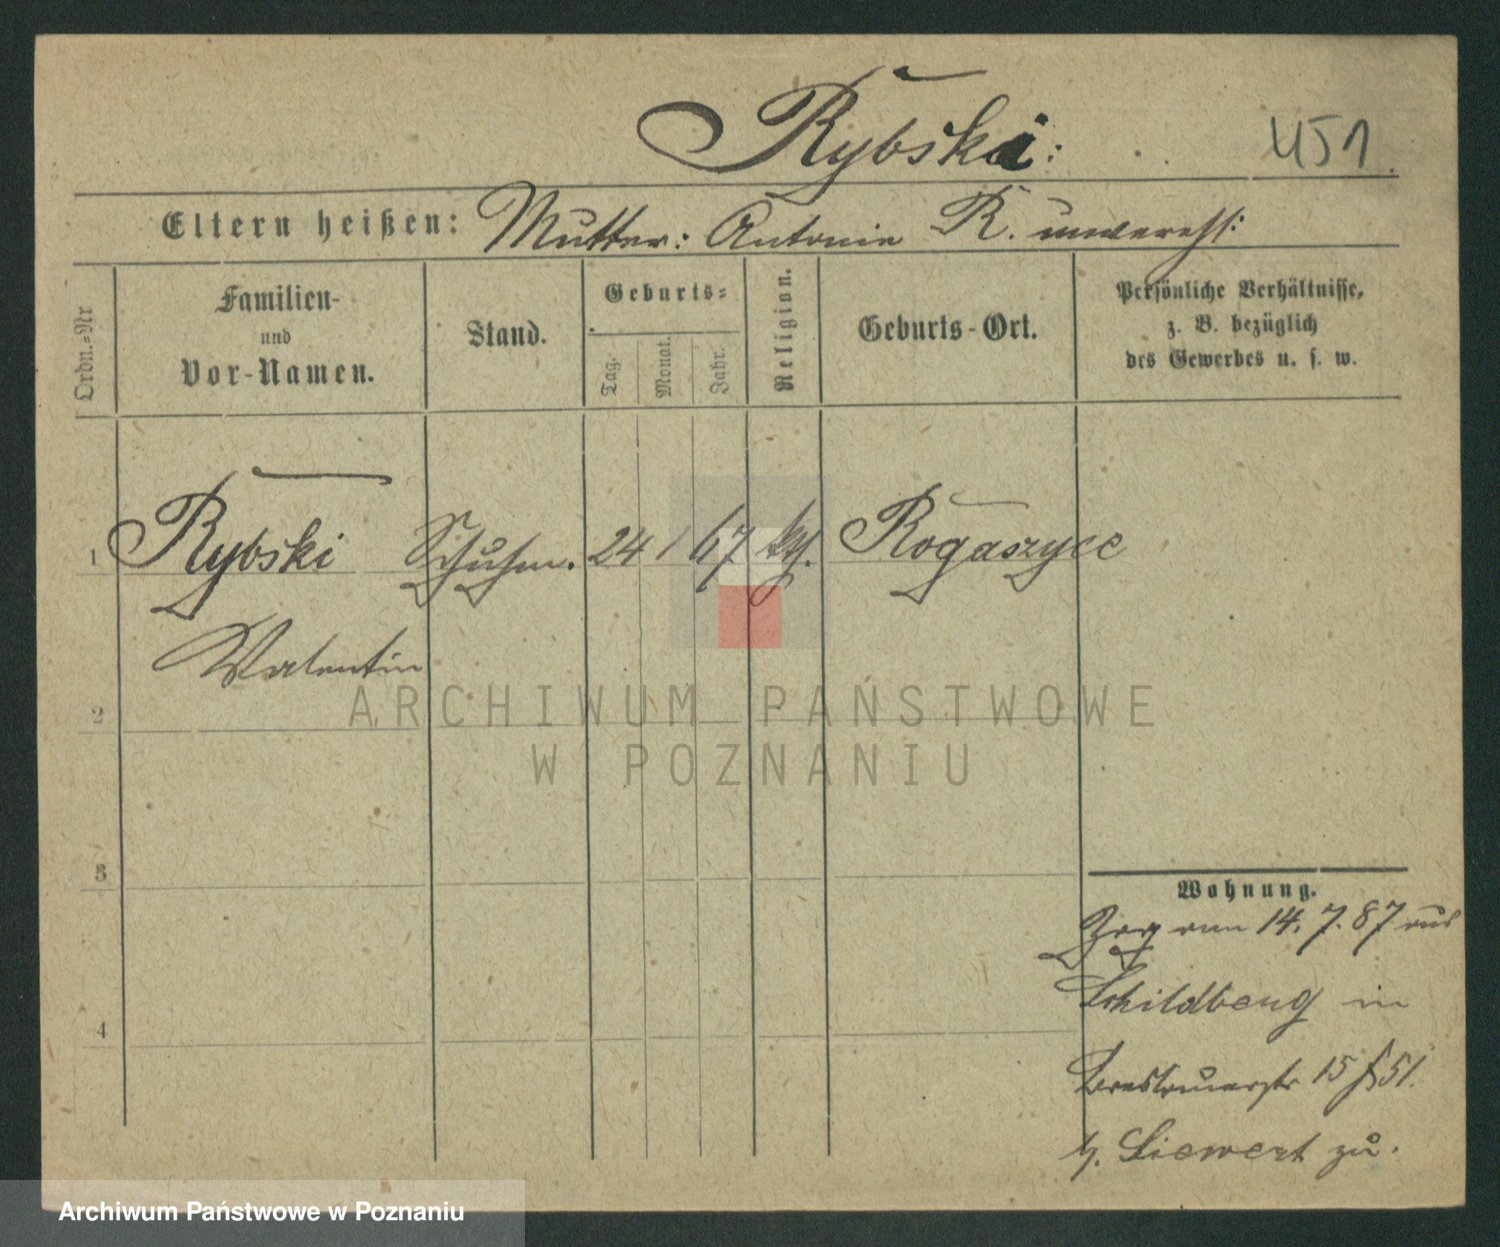 Rybski: 451.
Eltern heißen: Mutter: Antonie R. unvereh:
Ordn.-Nr
Familien-
und
Vor-Namen.
Stand.
Geburts-
Tag.
Monat.
Jahr.
Religion.
Geburts-Ort.
Persönliche Verhältnisse,
z. B. bezüglich
des Gewerbes u. s. w.
1 Rybski Schuhm. 24 1 67 kth. Rogaszyce
Valentin
2
3
4
Wohnung.
Zog am 14.7.87 aus
Schildberg in
15 51.
b. Siewert zu.
ARCHIWUM PAŃSTWOWE
W POZNANIU
Archiwum Państwowe w Poznaniu